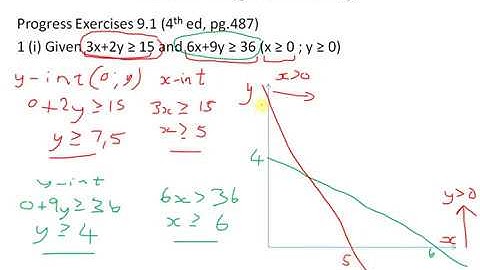 Progress Exercises 9.1 (4th ed, pg.487)
1 (i) Given 3x+2y ≥ 15 and 6x+9y ≥ 36 (x ≥ 0 ; y ≥ 0)
y-int (0; y) x-int
0+2y ≥ 15 3x ≥ 15
y ≥ 7,5 x ≥ 5
y-int
0+9y ≥ 36 6x > 36
y ≥ 4 x ≥ 6
x>0
y
4
y>0
x
5
6